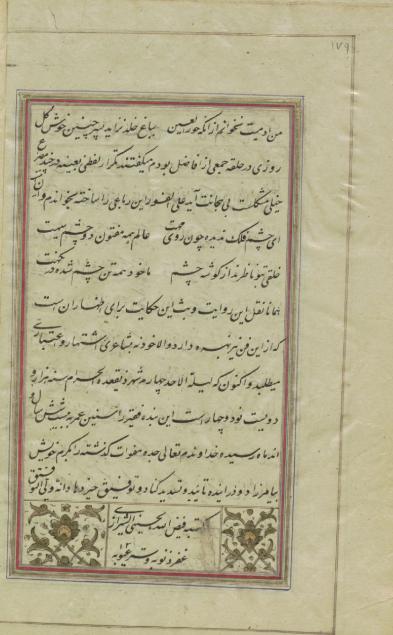 ۱۷۹
من آدمیت نخوانم از آنکه حورالعین بباغ خلد نزاید پسر چنین خوش گل
روزی در حلقه جمعی از افاضل بودم میگفتند تکرار لفظی بعینه در چند مصرع
خیلی مشکلست آیه علی الفور این رباعی را ساخته بخواندم و
ای چشم فلک ندیده چون روی مهت عالم همه مفتون دو چشم سیهت
خلقی بتو ناظرند از گوشه چشم ما خود همه تن چشم شده در نگهت
همانا نقل این روایت و بث این حکایت برای اظهار آن است
که از این فن نیز بهره دارد و الا خود نه بشاعری اشتهار و اعتباری
میطلبد و اکنون که لیلة الاحد چهارم شهر ذیقعده الحرام سنه هزار و
دویست نود و چهار است این بنده فقیر را سنین عمر به بیست شش سال و
اند ماه رسیده خداوندم تعالی جده هفوات گذشته را بکرم خویش
بیامرزد و در آینده تائید و تسدید کناد و توفیق خیر دهاد انه ولی التوفیق
کتبه فیض الله الحسینی الشیرازی
غفر ذنوبه و ستر عیوبه